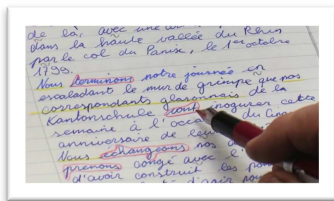 de là, avec une
dans la haute vallée du Rhin
par le col du Panixe, le 1er octobre
1799.
Nous terminons notre journée en
escaladant le mur de grimpe que nos
correspondants glaronais de la
Kantonsschule vont inaugurer cette
semaine à l'occa
anniversaire de leur
Nous échangeons nos
prenons congé avec l'
d'avoir construit les